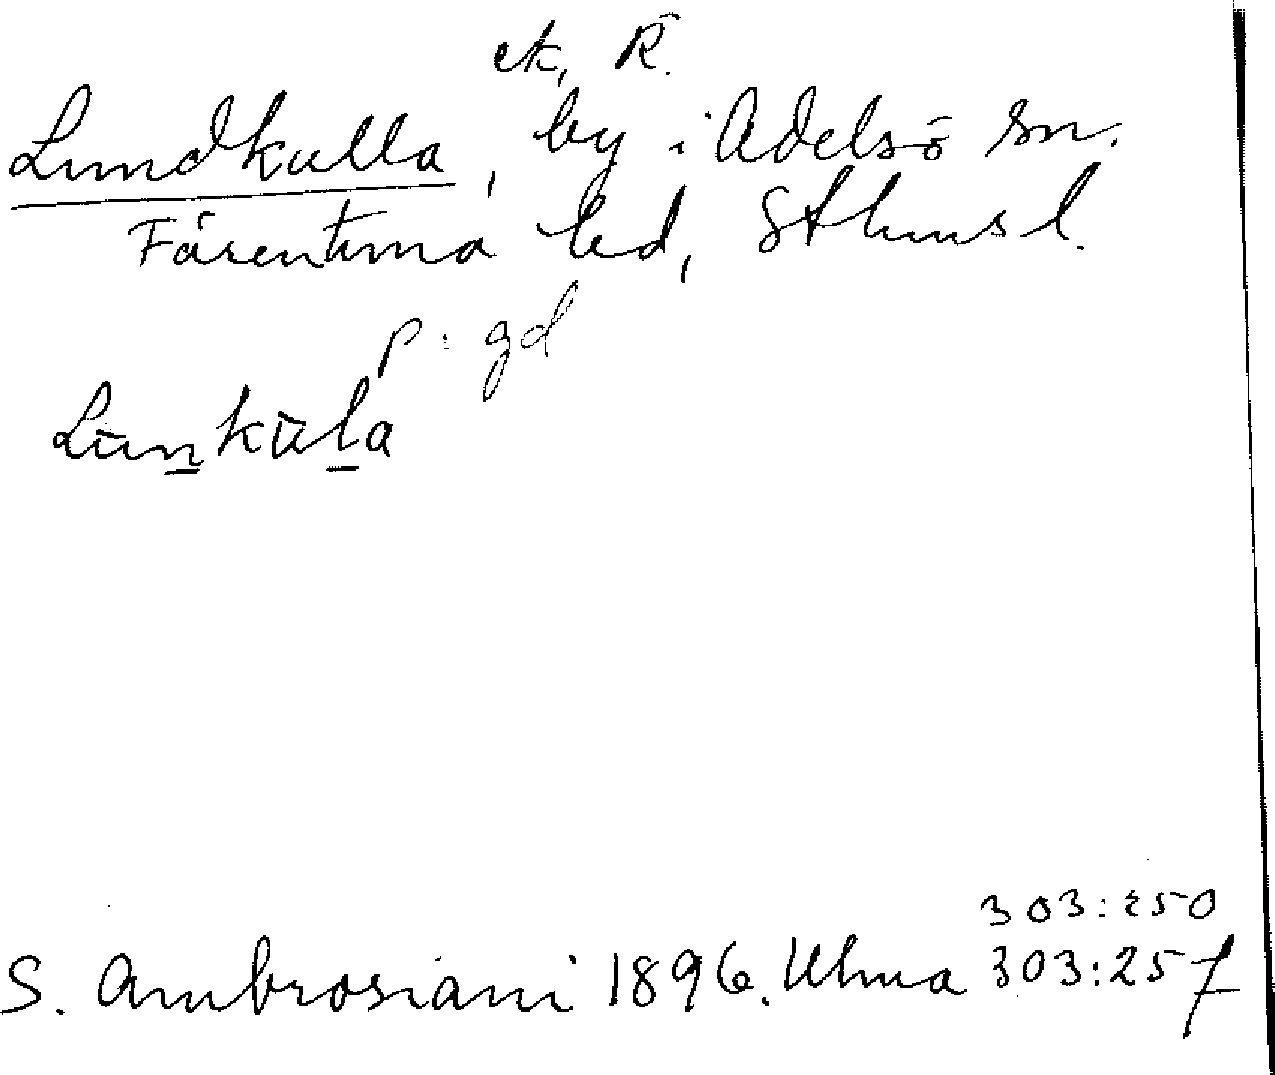 ek, R.
Lundkulla, by i Adelsö sn.
Färentuna hd, Sthms l.
p: gd
Lūn̲kūl̲a
303:250
S. Ambrosiani 1896. Ulma 303:257